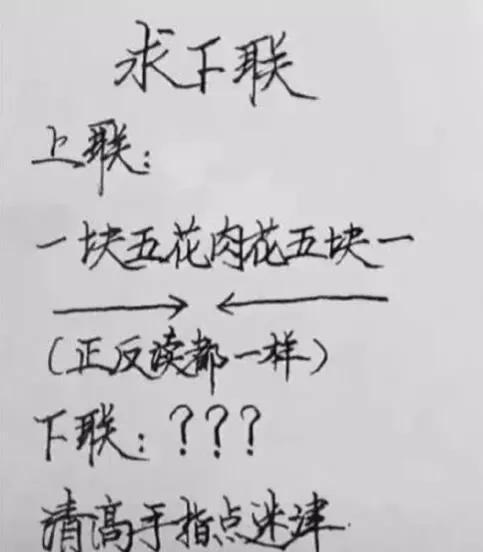 求下联
上联:
一块五花肉花五块一
(正反读都一样)
下联:???
请高手指点迷津